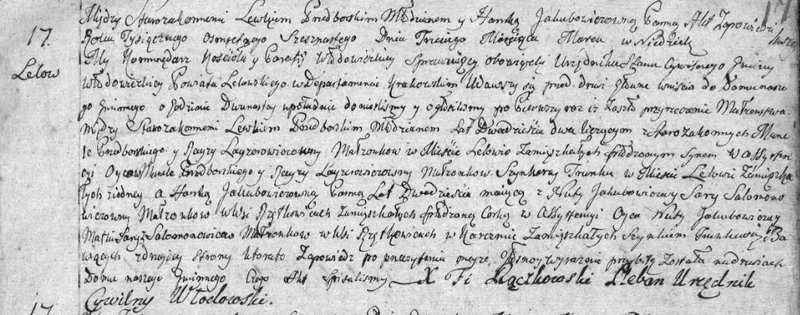 Między Starozakonemi Lewkiem Przedborskim Młodzianem y Hanką Jakubowiczowną Panną Akt Zapowiedzi
17.
Roku Tysiącznego Osmsetnego Szesnastego Dnia Trzeciego Miesiąca Marca w Niedzielę
Lelow
My Kommendarz Kościoła y Parafii Włodowickiey Sprawuiący obowiązki Urzędnika Stanu Cywilnego Gminy
Włodowickiey Powiatu Lelowskiego w Departamencie Krakowskim Udawszy się przed drzwi głowne weyścia do Domu nasze
go gminnego o godzinie Dwunastey w południe donieśliśmy y ogłosiliśmy po pierwszy raz iż zaszło przyrzeczenie Małżenstwa
Między Starozakonemi Lewkiem Przedborskim Młodzianem Lat Dwadzieścia dwa liczącym z Starozakonnych
Przedborskiego y Layzerowiczowny Małżonkow w Mieście Lelowie Zamieszkałych spłodzonym Synem w Assysten
cyi Oyca Przedborskiego y Layzerowiczowny Małżonkow Szynkarzy Trunku w Mieście Lelowie Zamieszka
łych a Hanką Jakubowiczowną Panną Lat Dwadzieścia maiącą z Jakubowiczow y Sary Salomono
wiczowny Małżonkow w Wsi Zamieszkałych spłodzoną Corką w Assystencyi Oyca Jakubowicza y
Matki Sary Salomonowiczow Małżonkow w Wsi w Karczmie Zamieszkałych Szynkiem Trunkow
wiących z drugiey strony ktorato Zapowiedz po przeczytaniu przybitą Została na drzwiach
Domu naszego Gminnego Czego Akt spisaliśmy X Pleban Urzędnik
Cywilny Włodowski.
17